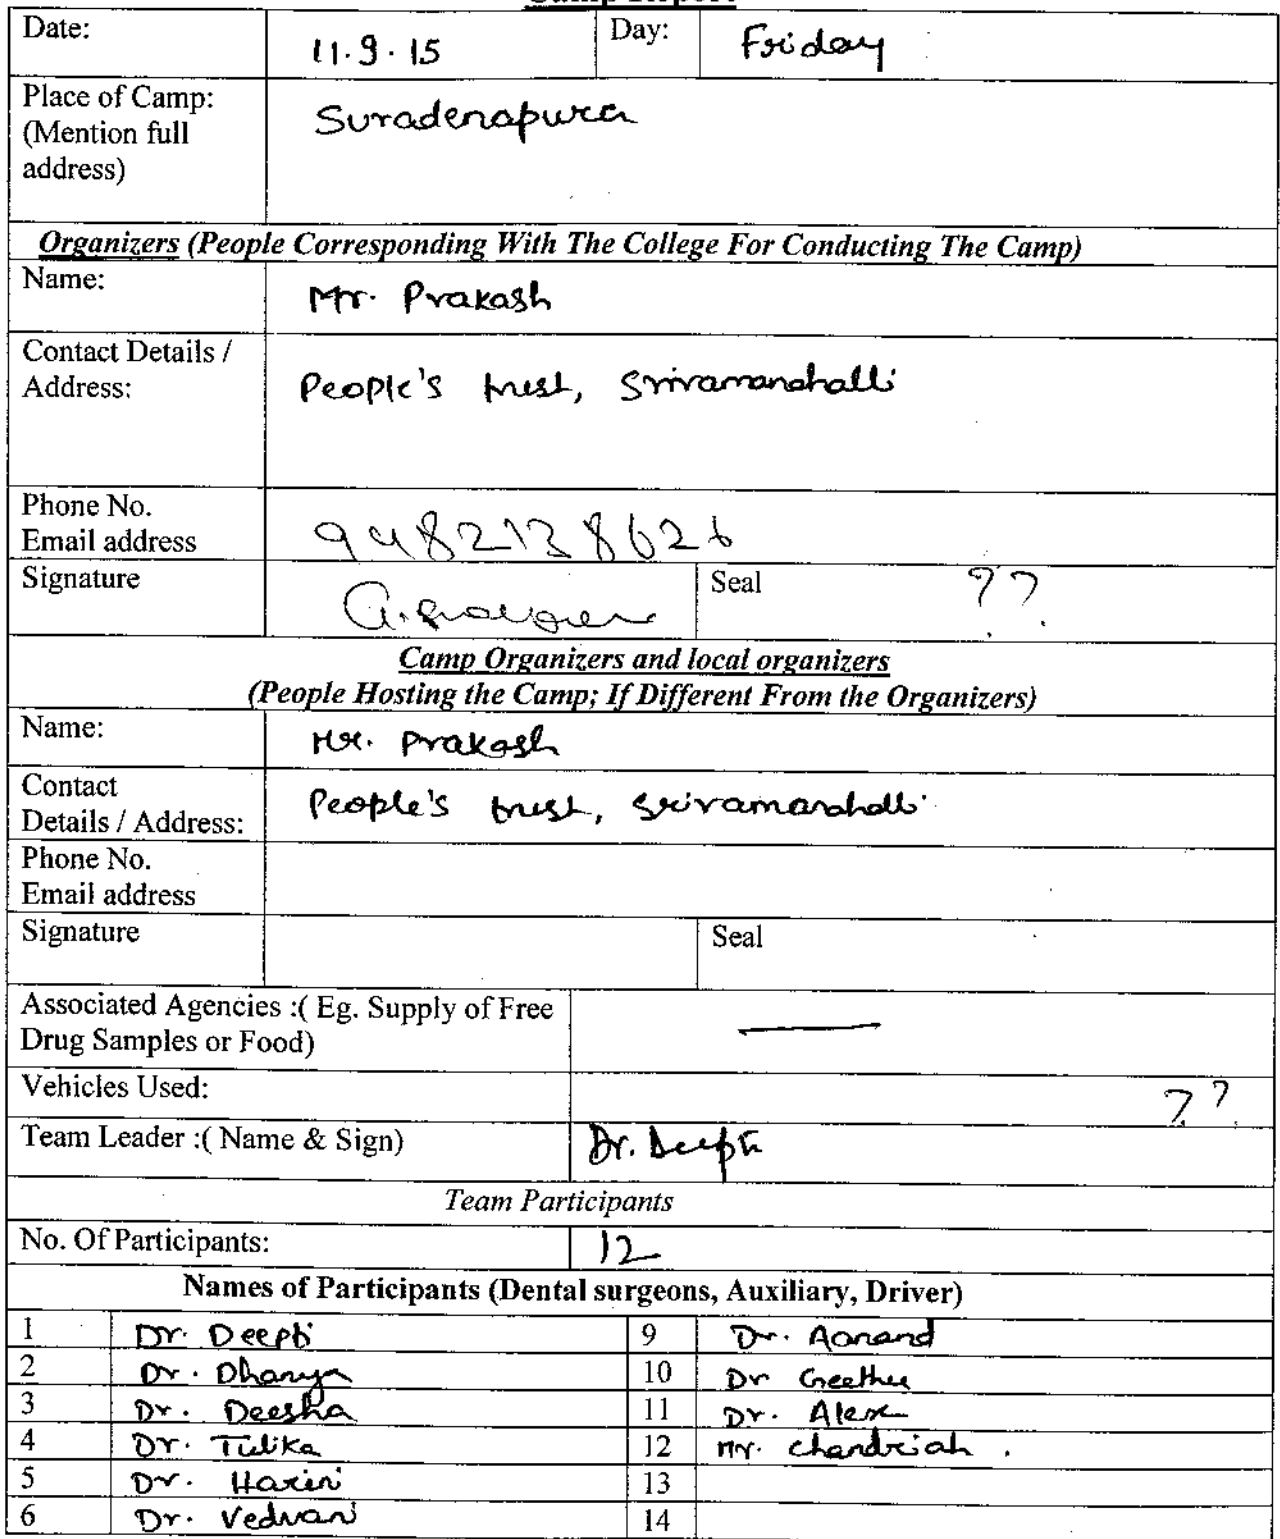 Camp Report
Date: 11.9.15 Day: Friday
Place of Camp: Suradenapura
(Mention full
address)
Organizers (People Corresponding With The College For Conducting The Camp)
Name: Mr. Prakash
Contact Details /
Address: People's trust, Srivamanahalli
Phone No.
Email address 9482138626
Signature Seal ??
Camp Organizers and local organizers
(People Hosting the Camp; If Different From the Organizers)
Name: Mr. Prakash
Contact
Details / Address: People's trust, Srivamanahalli
Phone No.
Email address
Signature Seal
Associated Agencies :( Eg. Supply of Free
Drug Samples or Food) —
Vehicles Used: ??
Team Leader :( Name & Sign) Dr. Deepti
Team Participants
No. Of Participants: 12
Names of Participants (Dental surgeons, Auxiliary, Driver)
1 Dr. Deepti 9 Dr. Aanand
2 Dr. Dhanya 10 Dr Geethu
3 Dr. Deesha 11 Dr. Alex
4 Dr. Tulika 12 Mr. Chandriah .
5 Dr. Harini 13
6 Dr. Vedvani 14